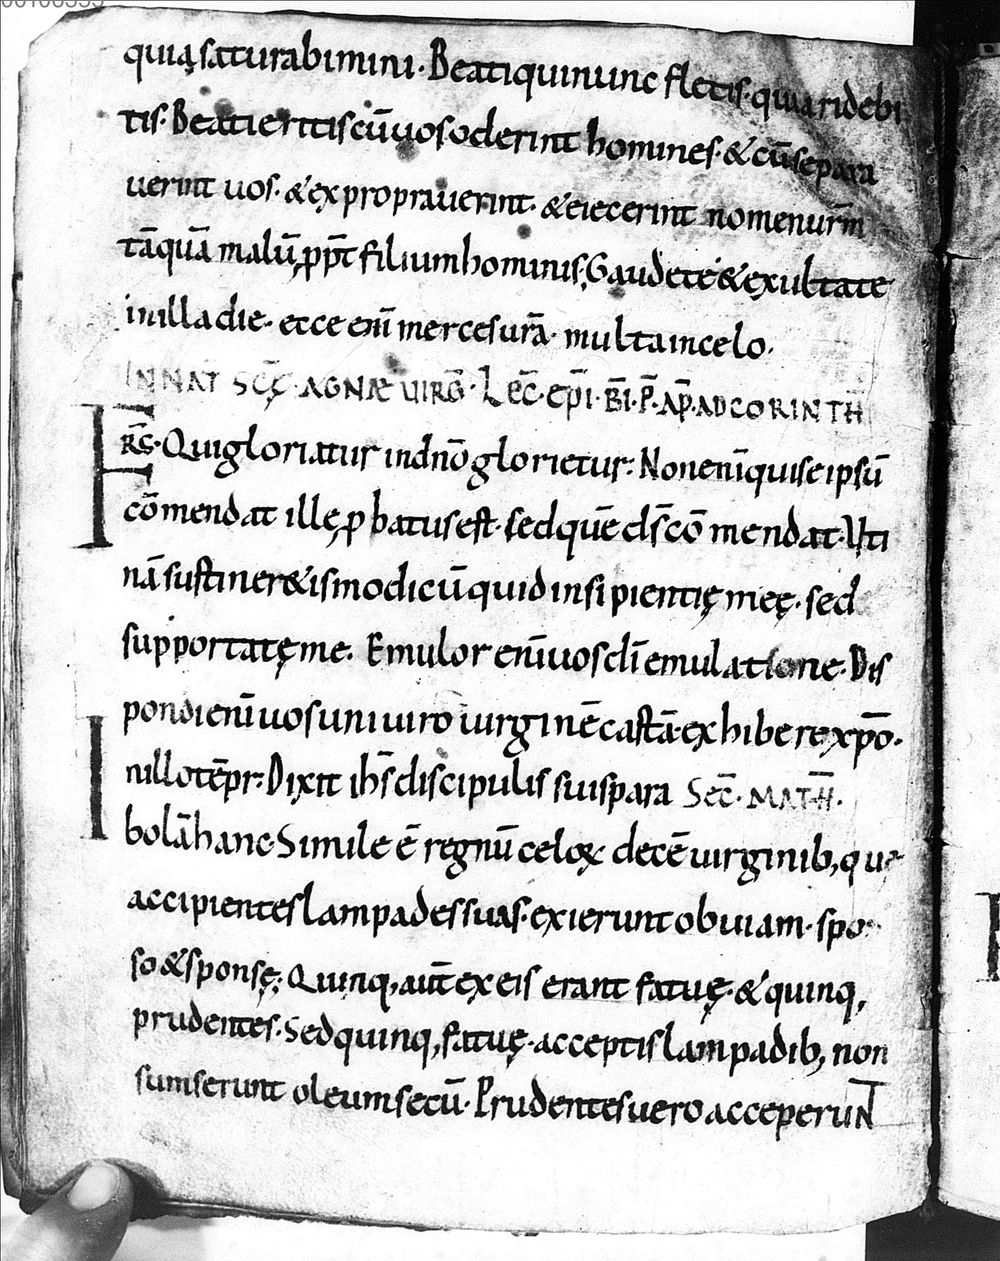 quia saturabimini. Beati qui nunc fletis. quia ridebi
tis. Beati eritis cū uos oderint homines. & cū separa
uerint uos. & expropraverint. & eiecerint nomen urm̄
tāquā malū, ꝓpt̄ filium hominis, Gaudete & exultate
in illa die. ecce eni̅ merces ur̄a. multa in celo.
IN NAT SC̄Ę AGNÆ VIRG̅. Lec̄. ep̄i. B̄I. P̄. AP̄. AD CORINTH̄
F
R̄C̄. Qui gloriatur in dn̄o glorietur: Non eni̅ qui se ipsū
cō mendat ille ꝓbatus est. sed quē ds̄ cō mendat. Uti
nā sustiner&is modicū quid insipientię meę. sed
supportatę me. Emulor eni̅ uos di̅ emulatione. Dis
pondi eni̅ uos uni uiro uirginē castā exhibere xp̄o.
I
nillo tēpr: Dixit ih̄s discipulis suis para SEC̄. MATH̄.
bolā hanc. Simile ē regnū celoꝝ decē uirginib, quę
accipientes lampades suas. exierunt obuiam. spo
so & sponsę; Quinq, aut̄ ex eis erant fatuę. & quinq,
prudentes. Sed quinq, fatuę. acceptis lampadib, non
sumserunt oleum secū. Prudentes uero acceperunt